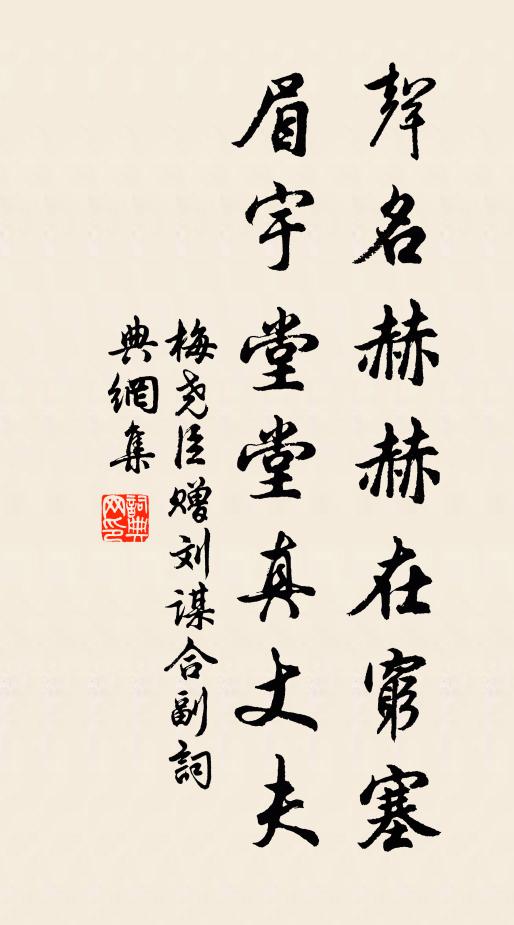 聲名赫赫在窮塞
眉宇堂堂真丈夫
梅尧臣赠刘谋合副詞
典網集
詞典
网印